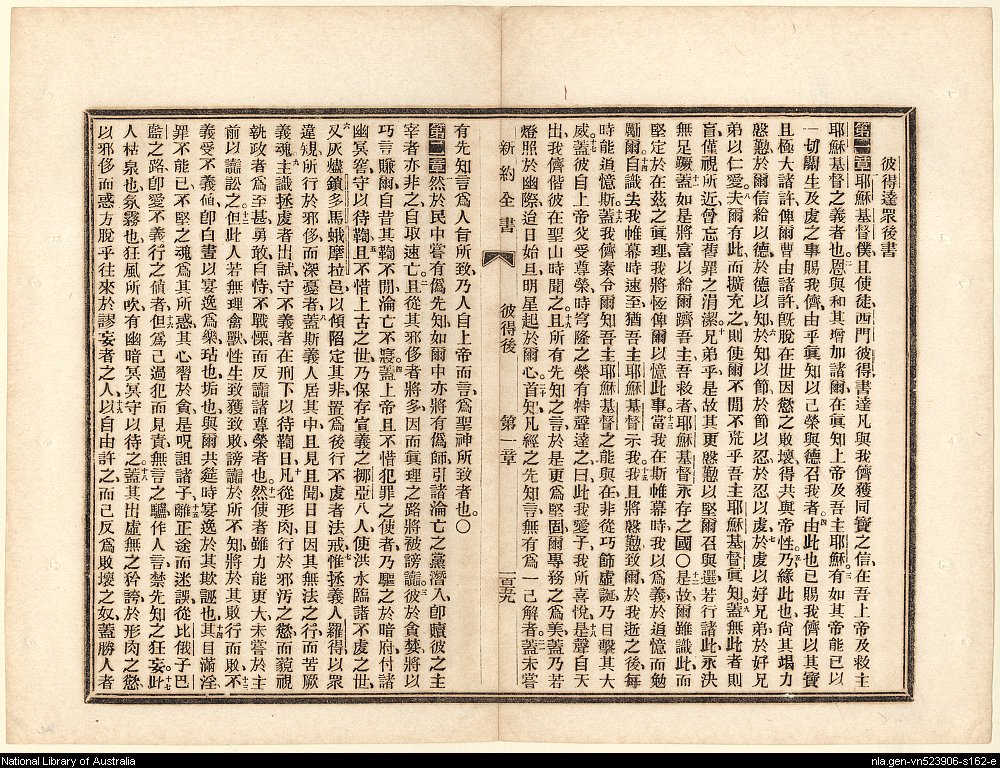 彼得達眾後書
第一章耶穌基督僕且使徒西門彼得書達凡與我儕獲同寶之信在吾上帝及救主
耶穌基督之義者也恩與和其增加諸爾在眞知上帝及吾主耶穌有如其帝能已以
一切關生及虔之事賜我儕由乎眞知以己榮與德召我者由此也已賜我儕以其寶
且極大諸許俾爾曹由諸許旣脫在世因慾之敗壞得共與帝性乃緣此也尙其竭力
慇懃於爾信給以德於德以知於知以節於節以忍於忍以虔於虔以好兄弟於好兄
弟以仁愛夫爾有此而擴充之則使爾不閒不荒乎吾主耶穌基督眞知蓋無此者則
盲僅視所近曾忘舊罪之涓潔兄弟乎是故其更慇懃以堅爾召與選若行諸此永決
無足蹶蓋如是將富以給爾躋吾主吾救者耶穌基督永存之國〇是故爾雖識此而
堅定於在茲之眞理我將恆俾爾以憶此事當我在斯帷幕時我以爲義於追憶而勉
勵爾自識去我帷幕時速至猶吾主耶穌基督示我我且將慇懃致爾於我逝之後每
時能追憶斯蓋我儕素令爾知吾主耶穌基督之能與在非從巧節虛誕乃目擊其大
威蓋彼自上帝父受尊榮時穹隆之榮有特聲達之曰此我愛子我所喜悅是聲自天
出我儕偕彼在聖山時聞之且所有先知之言於是更我爲堅固爾專務之爲美蓋乃若
燈照於幽際迨日始旦明星起於爾心首知凡經之先知言無有爲一己解者蓋未嘗
新約全書 彼得後 第一章 一百五九
有先知言爲人旨所致乃人自上帝而言爲聖神所致者也〇
第二章然於民中嘗有僞先知如爾中亦將有僞師引諸淪亡之黨潛入卽贖彼之主
宰者亦非之自取速亡且從其邪侈者將多因而眞理之路將被謗讟彼於貪婪將以
巧言賺爾自昔其鞫不閒淪亡不寢蓋上帝且不惜犯罪之使者乃驅之於暗府付諸
幽冥窖守以待鞫且不惜上古之世乃保存宣義之挪亞八人使洪水臨諸不虔之世
又灰燼鎖多馬蛾摩拉邑以傾陷定其非置爲後行不虔者法戒惟拯義人羅得以眾
違規所行於邪侈而深憂者蓋斯義人居其中且見且聞日日因其無法之行而苦厥
義魂主識拯虔者出試守不義者在刑下以待鞫日凡從形肉行於邪汚之慾而藐視
執政者爲至甚勇敢自恃不戰慄而反讟諸尊榮者也然使者雖力能更大未嘗於主
前以讟訟之但此人若無理禽獸性生致獲致敗謗讟於所不知將於其敗行而敗
義受不義値卽白晝以宴逸爲樂玷也垢也與爾共筵時宴逸於其欺誑也其目滿淫
罪不能已不堅之魂爲其所惑其心習於貪是呪詛諸子離正途而迷誤從比俄子巴
監之路卽愛不義行之値者但爲己過犯而見責無言之驢作人言禁先知之狂妄此
人枯泉也氛霧也狂風所吹有幽暗冥冥守以待之蓋其出虛無之矜誇於形肉之慾
以邪侈而惑方脫乎往來於謬妄者之人以自由許之而己反爲敗壞之奴蓋勝人者
National Library of Australia
nla.gen-vn523906-s162-e